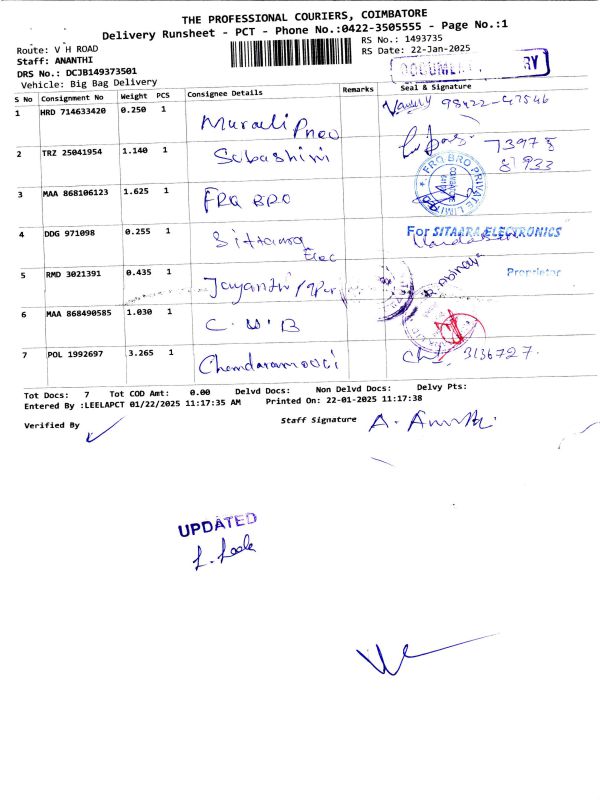 THE PROFESSIONAL COURIERS, COIMBATORE
Delivery Runsheet - PCT - Phone No.:0422-3505555 - Page No.:1
Route: V H ROAD
RS No.: 1493735
Staff: ANANTHI
RS Date: 22-Jan-2025
DRS No.: DCJB149373501
Vehicle: Big Bag Delivery
S No Consignment No Weight PCS Consignee Details Remarks Seal & Signature
1 HRD 714633420 0.250 1 Murali Pneu 98422-47546
2 TRZ 25041954 1.140 1 Subashini 73978
87933
3 MAA 868106123 1.625 1 FRQ BRO FRQ BRO PRIVATE LIMITED
4 DDG 971098 0.255 1 Sittaara Elec For SITAARA ELECTRONICS
Proprietor
5 RMD 3021391 0.435 1 Jayanthi
6 MAA 868490585 1.030 1 C.W.B
7 POL 1992697 3.265 1 Chandaramouli 3136727.
Tot Docs: 7 Tot COD Amt: 0.00 Delvd Docs: Non Delvd Docs: Delvy Pts:
Entered By :LEELAPCT 01/22/2025 11:17:35 AM Printed On: 22-01-2025 11:17:38
Verified By Staff Signature
UPDATED